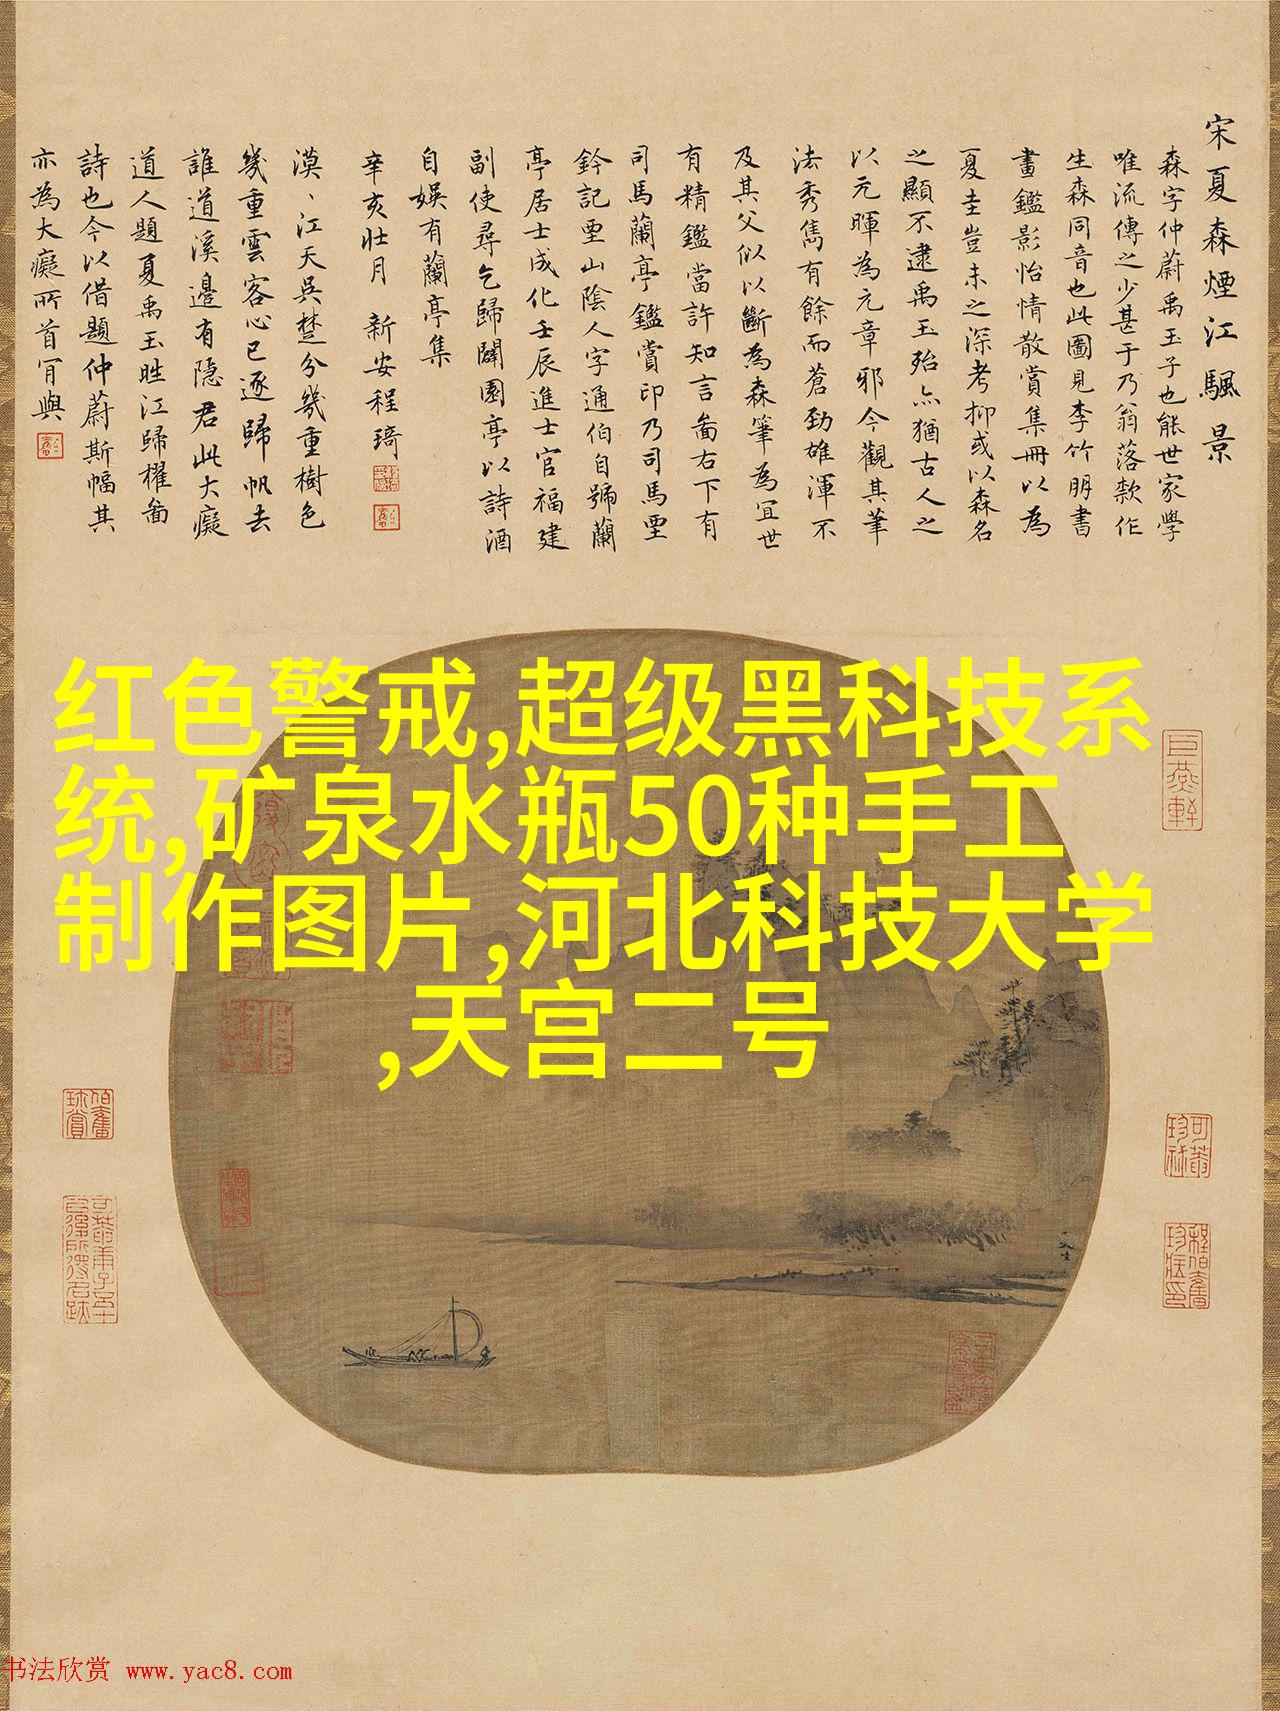 宋夏森煙江颿景
森字仲蔚禹玉子也能世家學
唯流傳之少甚于乃翁落款作
生森同音也此圖見李竹朋書
畫鑑影怡情散賞集冊以為
夏圭豈未之深考抑或以森名
之顯不逮禹玉殆亦猶古人之
以元暉為元章邪今觀其筆
法秀雋有餘而蒼勁雄渾不
及其父似以斷為森筆為宜世
有精鑑當許知言畣右下有
司馬蘭亭鑑賞印乃司馬堊
鈐記堊山陰人字通伯自號蘭
亭居士成化壬辰進士官福建
副使尋乞歸闢園亭以詩酒
自娛有蘭亭集
辛亥壯月 新安程琦
漠、江天吳楚分幾重樹色
幾重雲客心已逐歸帆去
誰道溪邊有隱君此大癡
道人題夏禹玉晴江歸櫂畣
詩也今以借題仲蔚斯幅其
亦為大癡所首肎與
红色警戒,超级黑科技系
统,矿泉水瓶50种手工
制作图片,河北科技大学
,天宫二号
书法欣赏 www.yac8.com